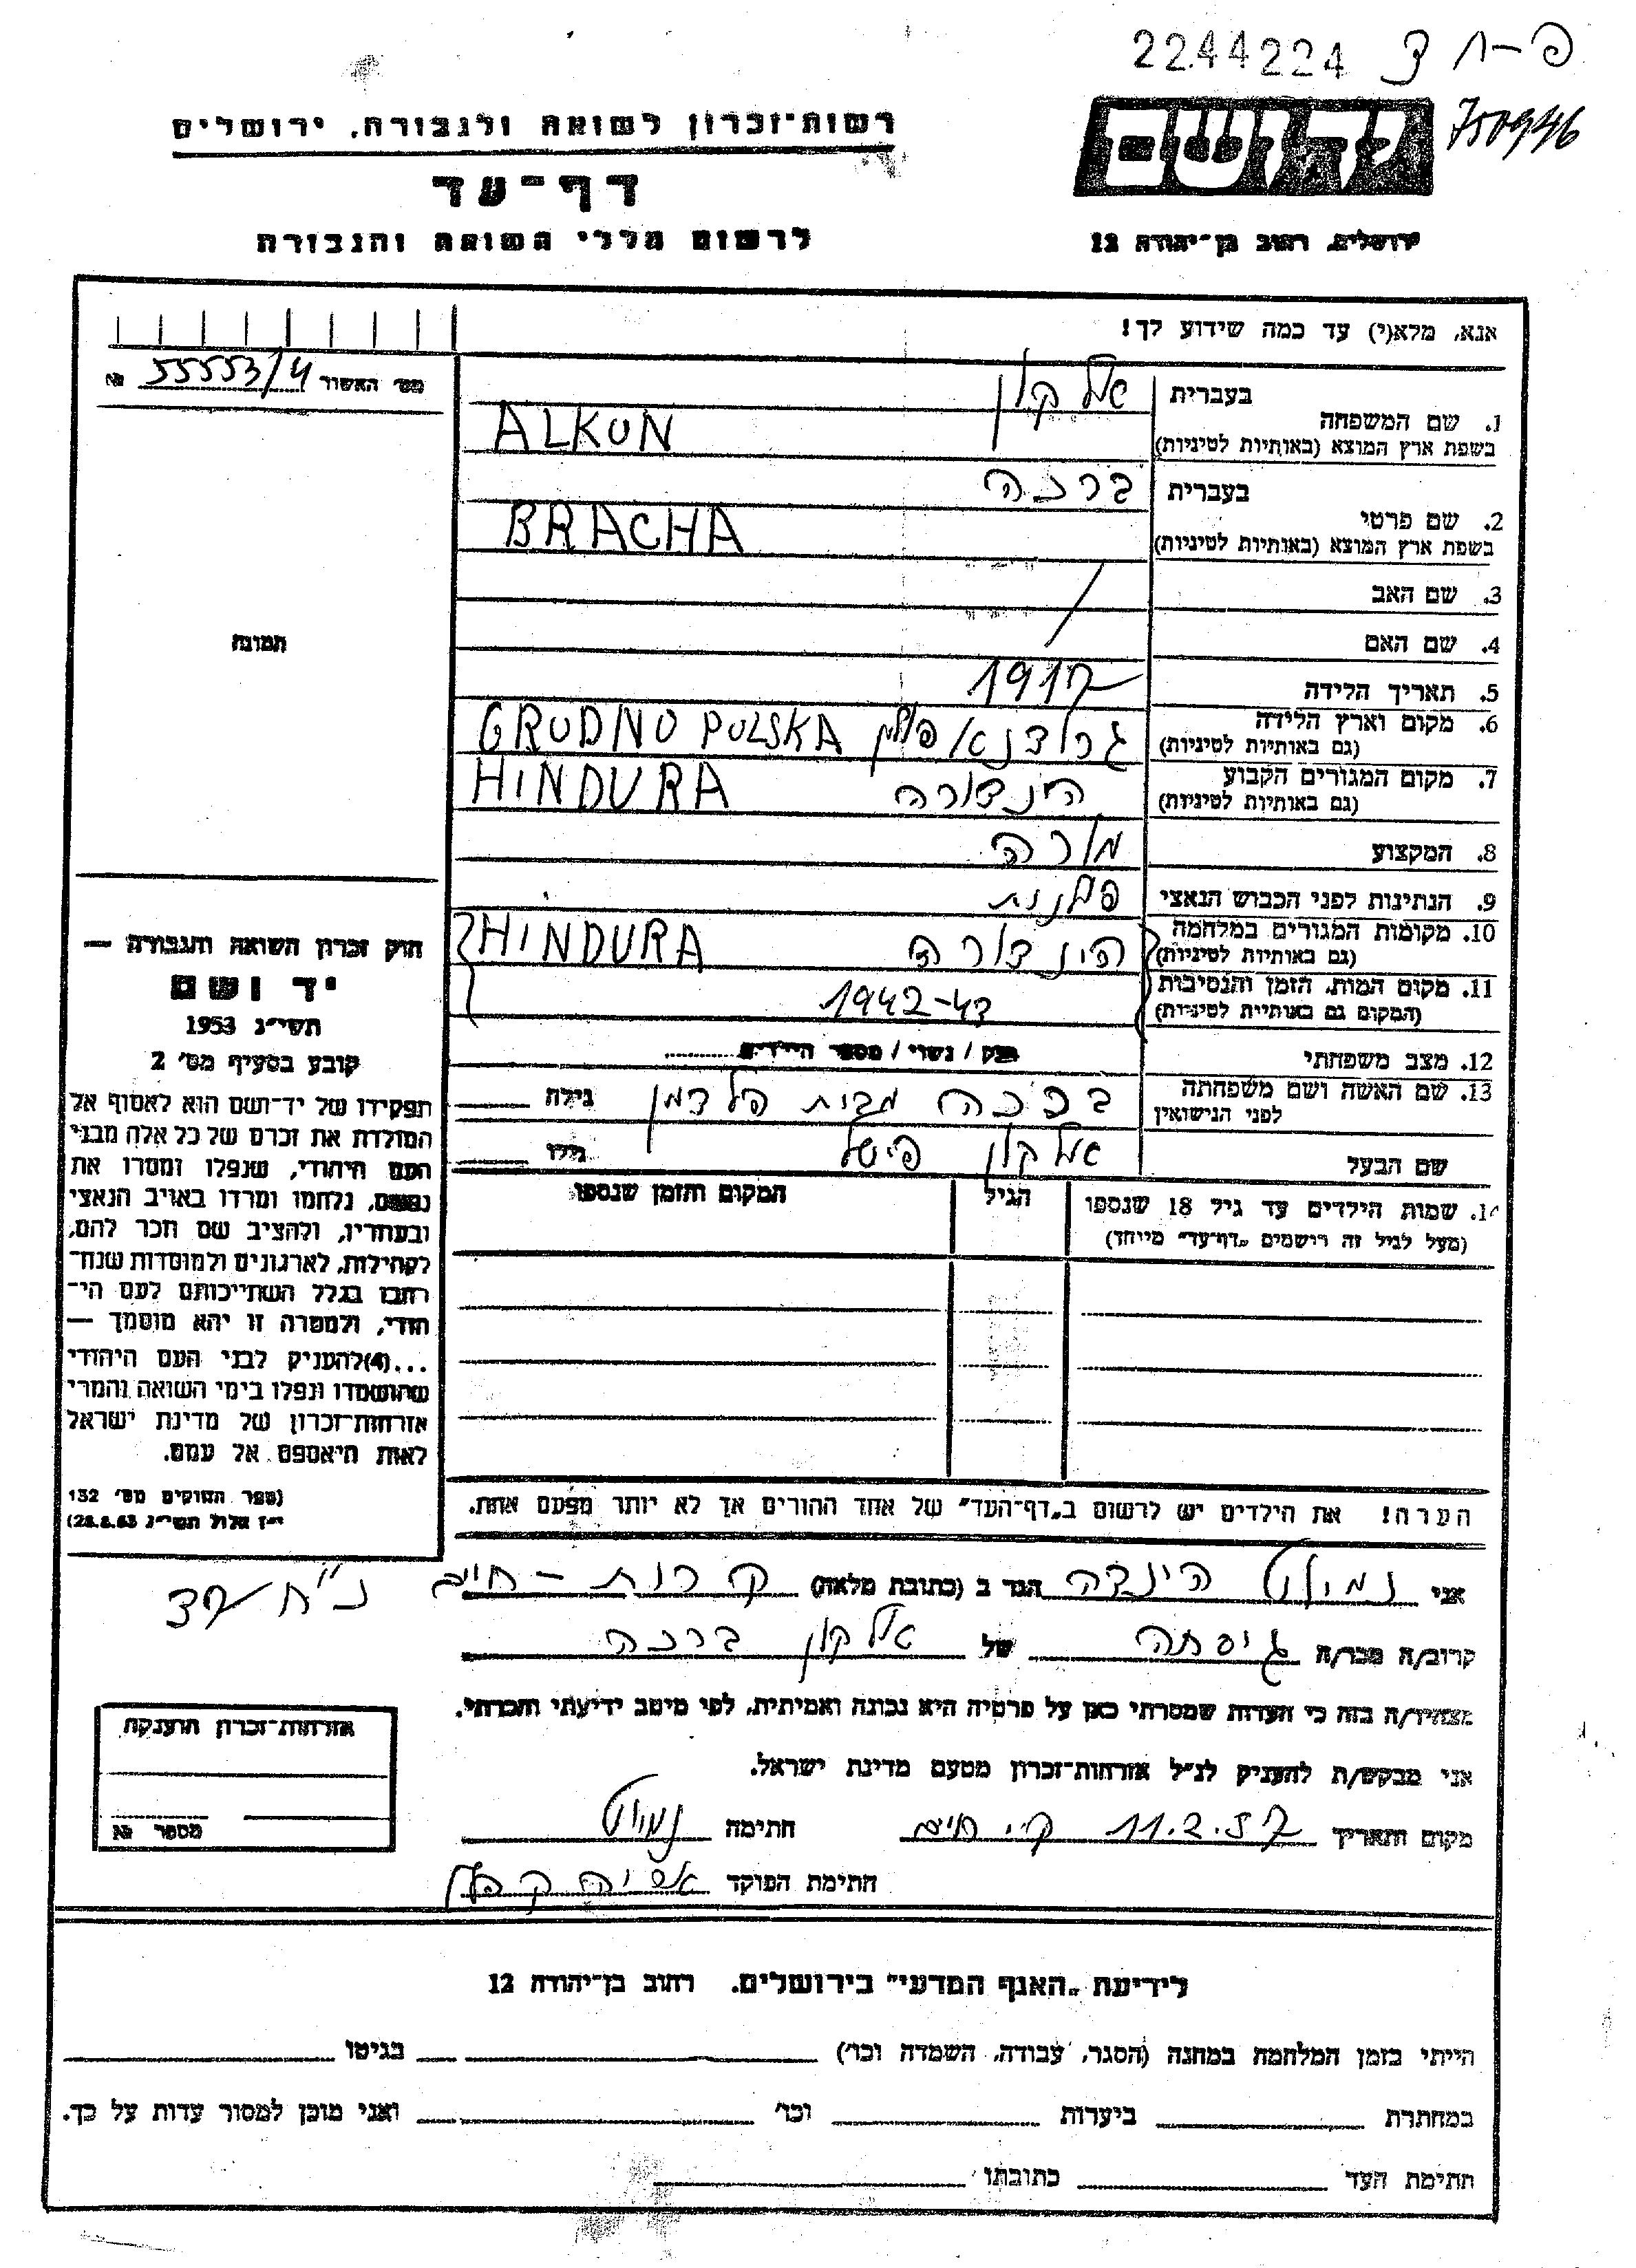 2244224
פ-ח 3
750946
יד ושם
ירושלים, רחוב בן-יהודה 12
רשות-זכרון לשואה ולגבורה, ירושלים
דף-עד
לרשום חללי השואה והגבורה
אנא, מלא(י) עד כמה שידוע לך!
מס׳ האשור 55553/4 №
תמונה
בעברית אלקון
1. שם המשפחה
בשפת ארץ המוצא (באותיות לטיניות) ALKON
בעברית ברכה
2. שם פרטי
בשפת ארץ המוצא (באותיות לטיניות) BRACHA
3. שם האב /
4. שם האם
5. תאריך הלידה 1917
6. מקום וארץ הלידה
(גם באותיות לטיניות) גרודנא פולין GRODNO POLSKA
7. מקום המגורים הקבוע
(גם באותיות לטיניות) הינדורה HINDURA
8. המקצוע מורה
9. הנתינות לפני הכבוש הנאצי פולנית
10. מקומות המגורים במלחמה
(גם באותיות לטיניות) הינדורה HINDURA
11. מקום המות, הזמן והנסיבות
(המקום גם באותיות לטיניות) 1942-43
12. מצב משפחתי רווק / נשוי / מספר הילדים
13. שם האשה ושם משפחתה
לפני הנישואין ברכה מבית פלדמן גילה
שם הבעל אלקון פישל גילו
14. שמות הילדים עד גיל 18 שנספו הגיל המקום והזמן שנספו
(מעל לגיל זה רישמים „דף-עד" מייחד)
חוק זכרון השואה והגבורה —
יד ושם
תשי״ג 1953
קובע בסעיף מס׳ 2
תפקידו של יד-ושם הוא לאסוף אל
המולדת את זכרם של כל אלה מבני
העם היהודי, שנפלו ומסרו את
נפשם, נלחמו ומרדו באויב הנאצי
ובעוזריו, ולהציב שם וזכר להם,
לקהילות, לארגונים ולמוסדות שנח-
רחבו בגלל השתייכותם לעם הי-
הודי, ולמטרה זו יהא מוסמך —
...(4)להעניק לבני העם היהודי
שהושמדו ונפלו בימי השואה והמרי
אזרחות-זכרון של מדינת ישראל
לאות היאספם אל עמם.
(ספר החוקים מס׳ 132
י״ז אלול תשי״ג 28.8.53)
הערה! את הילדים יש לרשום ב„דף-העד" של אחד ההורים אך לא יותר מפעם אחת.
אני הינדה הגר ב (כתובת מלאה) קרית-חיים
קרוב/ה מכר/ה גיסתה של אלקון ברכה
מצהיר/ה בזה כי העדות שמסרתי כאן על פרטיה היא נכונה ואמיתית, לפי מיטב ידיעתי והכרתי.
אני מבקש/ת להעניק לנ״ל אזרחות-זכרון מטעם מדינת ישראל.
מקום ותאריך ק. חיים 11.2.57 חתימה
חתימת הפוקד
אזרחות-זכרון הוענקה
מספר №
לידיעת „האגף המדעי" בירושלים. רחוב בן-יהודה 12
הייתי בזמן המלחמה במחנה (הסגר, עבודה, השמדה וכו׳) בגיטו
במחתרת ביערות וכו׳ ואני מוכן למסור עדות על כך.
חתימת העד כתובתו